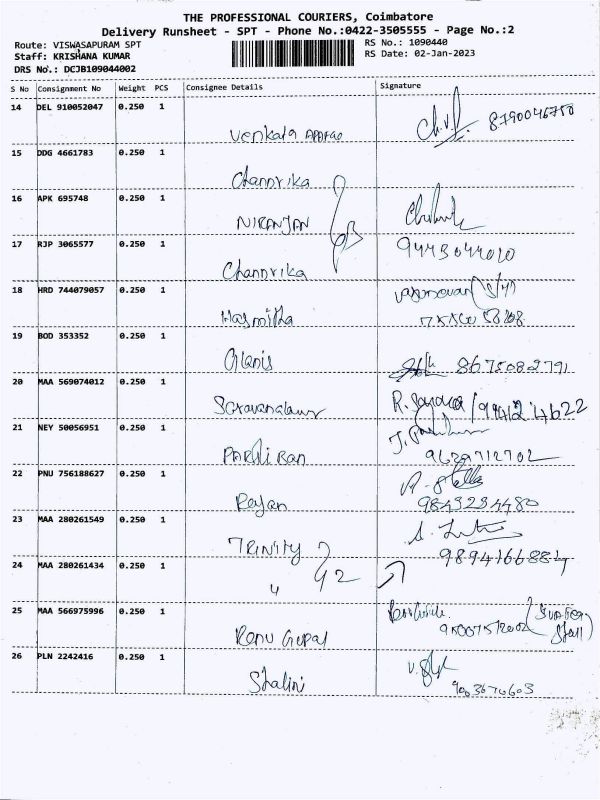 THE PROFESSIONAL COURIERS, Coimbatore
Delivery Runsheet - SPT - Phone No.:0422-3505555 - Page No.:2
Route: VISWASAPURAM SPT
RS No.: 1090440
Staff: KRISHANA KUMAR
RS Date: 02-Jan-2023
DRS No.: DCJB109044002
S No Consignment No Weight PCS Consignee Details Signature
14 DEL 910052047 0.250 1
Venkata 8790046750
15 DDG 4661783 0.250 1
Chandrika
16 APK 695748 0.250 1
NIRANJAN
17 RJP 3065577 0.250 1 9443044010
Chandrika
18 HRD 744079057 0.250 1
Hasmitha
19 BOD 353352 0.250 1
Glanis 8675082791
20 MAA 569074012 0.250 1
R.
21 NEY 50056951 0.250 1 J.
9629712702
22 PNU 756188627 0.250 1 A. Stella
Rajan 9843234480
23 MAA 280261549 0.250 1 S.
TRINITY
24 MAA 280261434 0.250 1
" G2
25 MAA 566975996 0.250 1
Renu Gopal
26 PLN 2242416 0.250 1
Shalini 9003676603